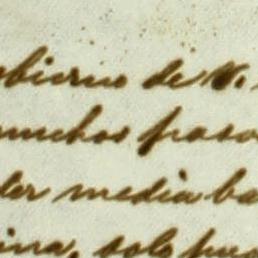 obierno de V.
muchos paso
der media ba
ina, solo pue